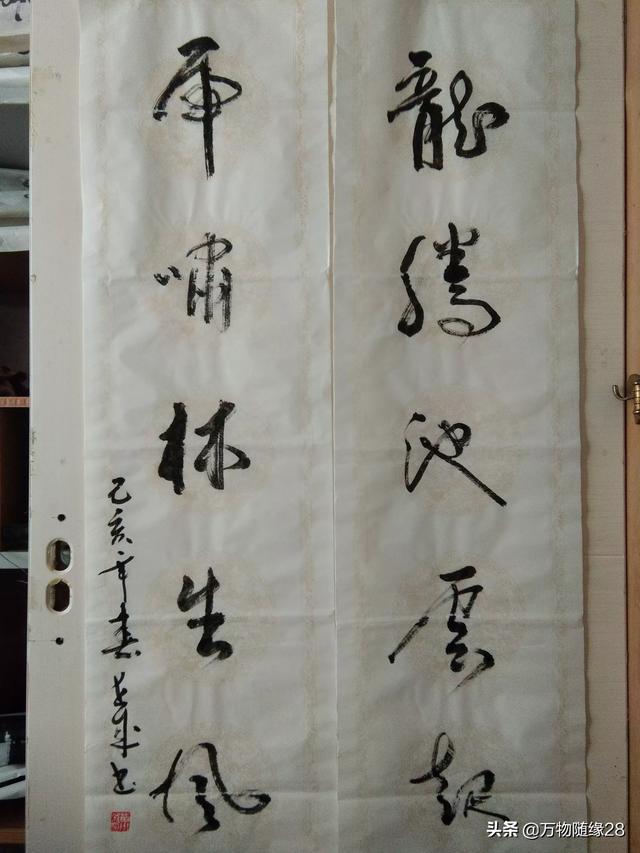 龍騰池雲起
虎嘯林生風
己亥年春
书
头条 @万物随缘28